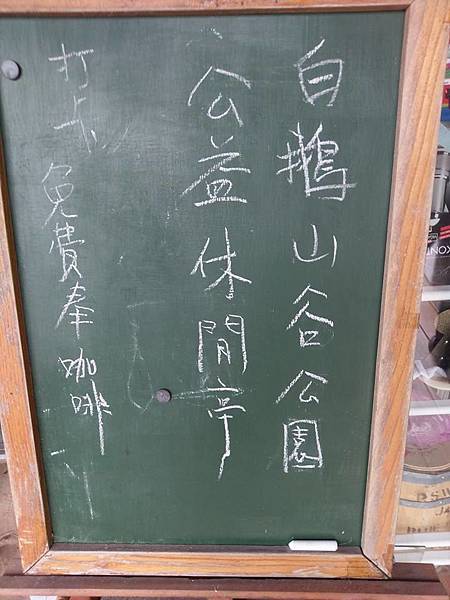 白鵝山谷公園
公益休閒亭
打卡免費奉咖啡